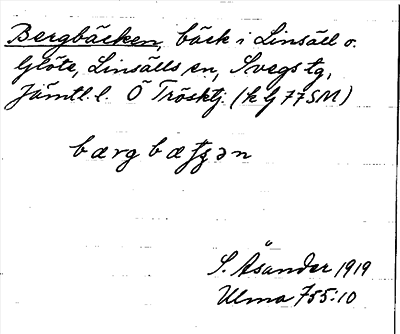 Bergbäcken, bäck i Linsäll o.
Glöte, Linsälls sn, Svegs tg,
Jämtl. l. Ö Trösktj. (k bj 77 SM)
bærgbætʂən
S. Åsander 1919
Ulma 755:10